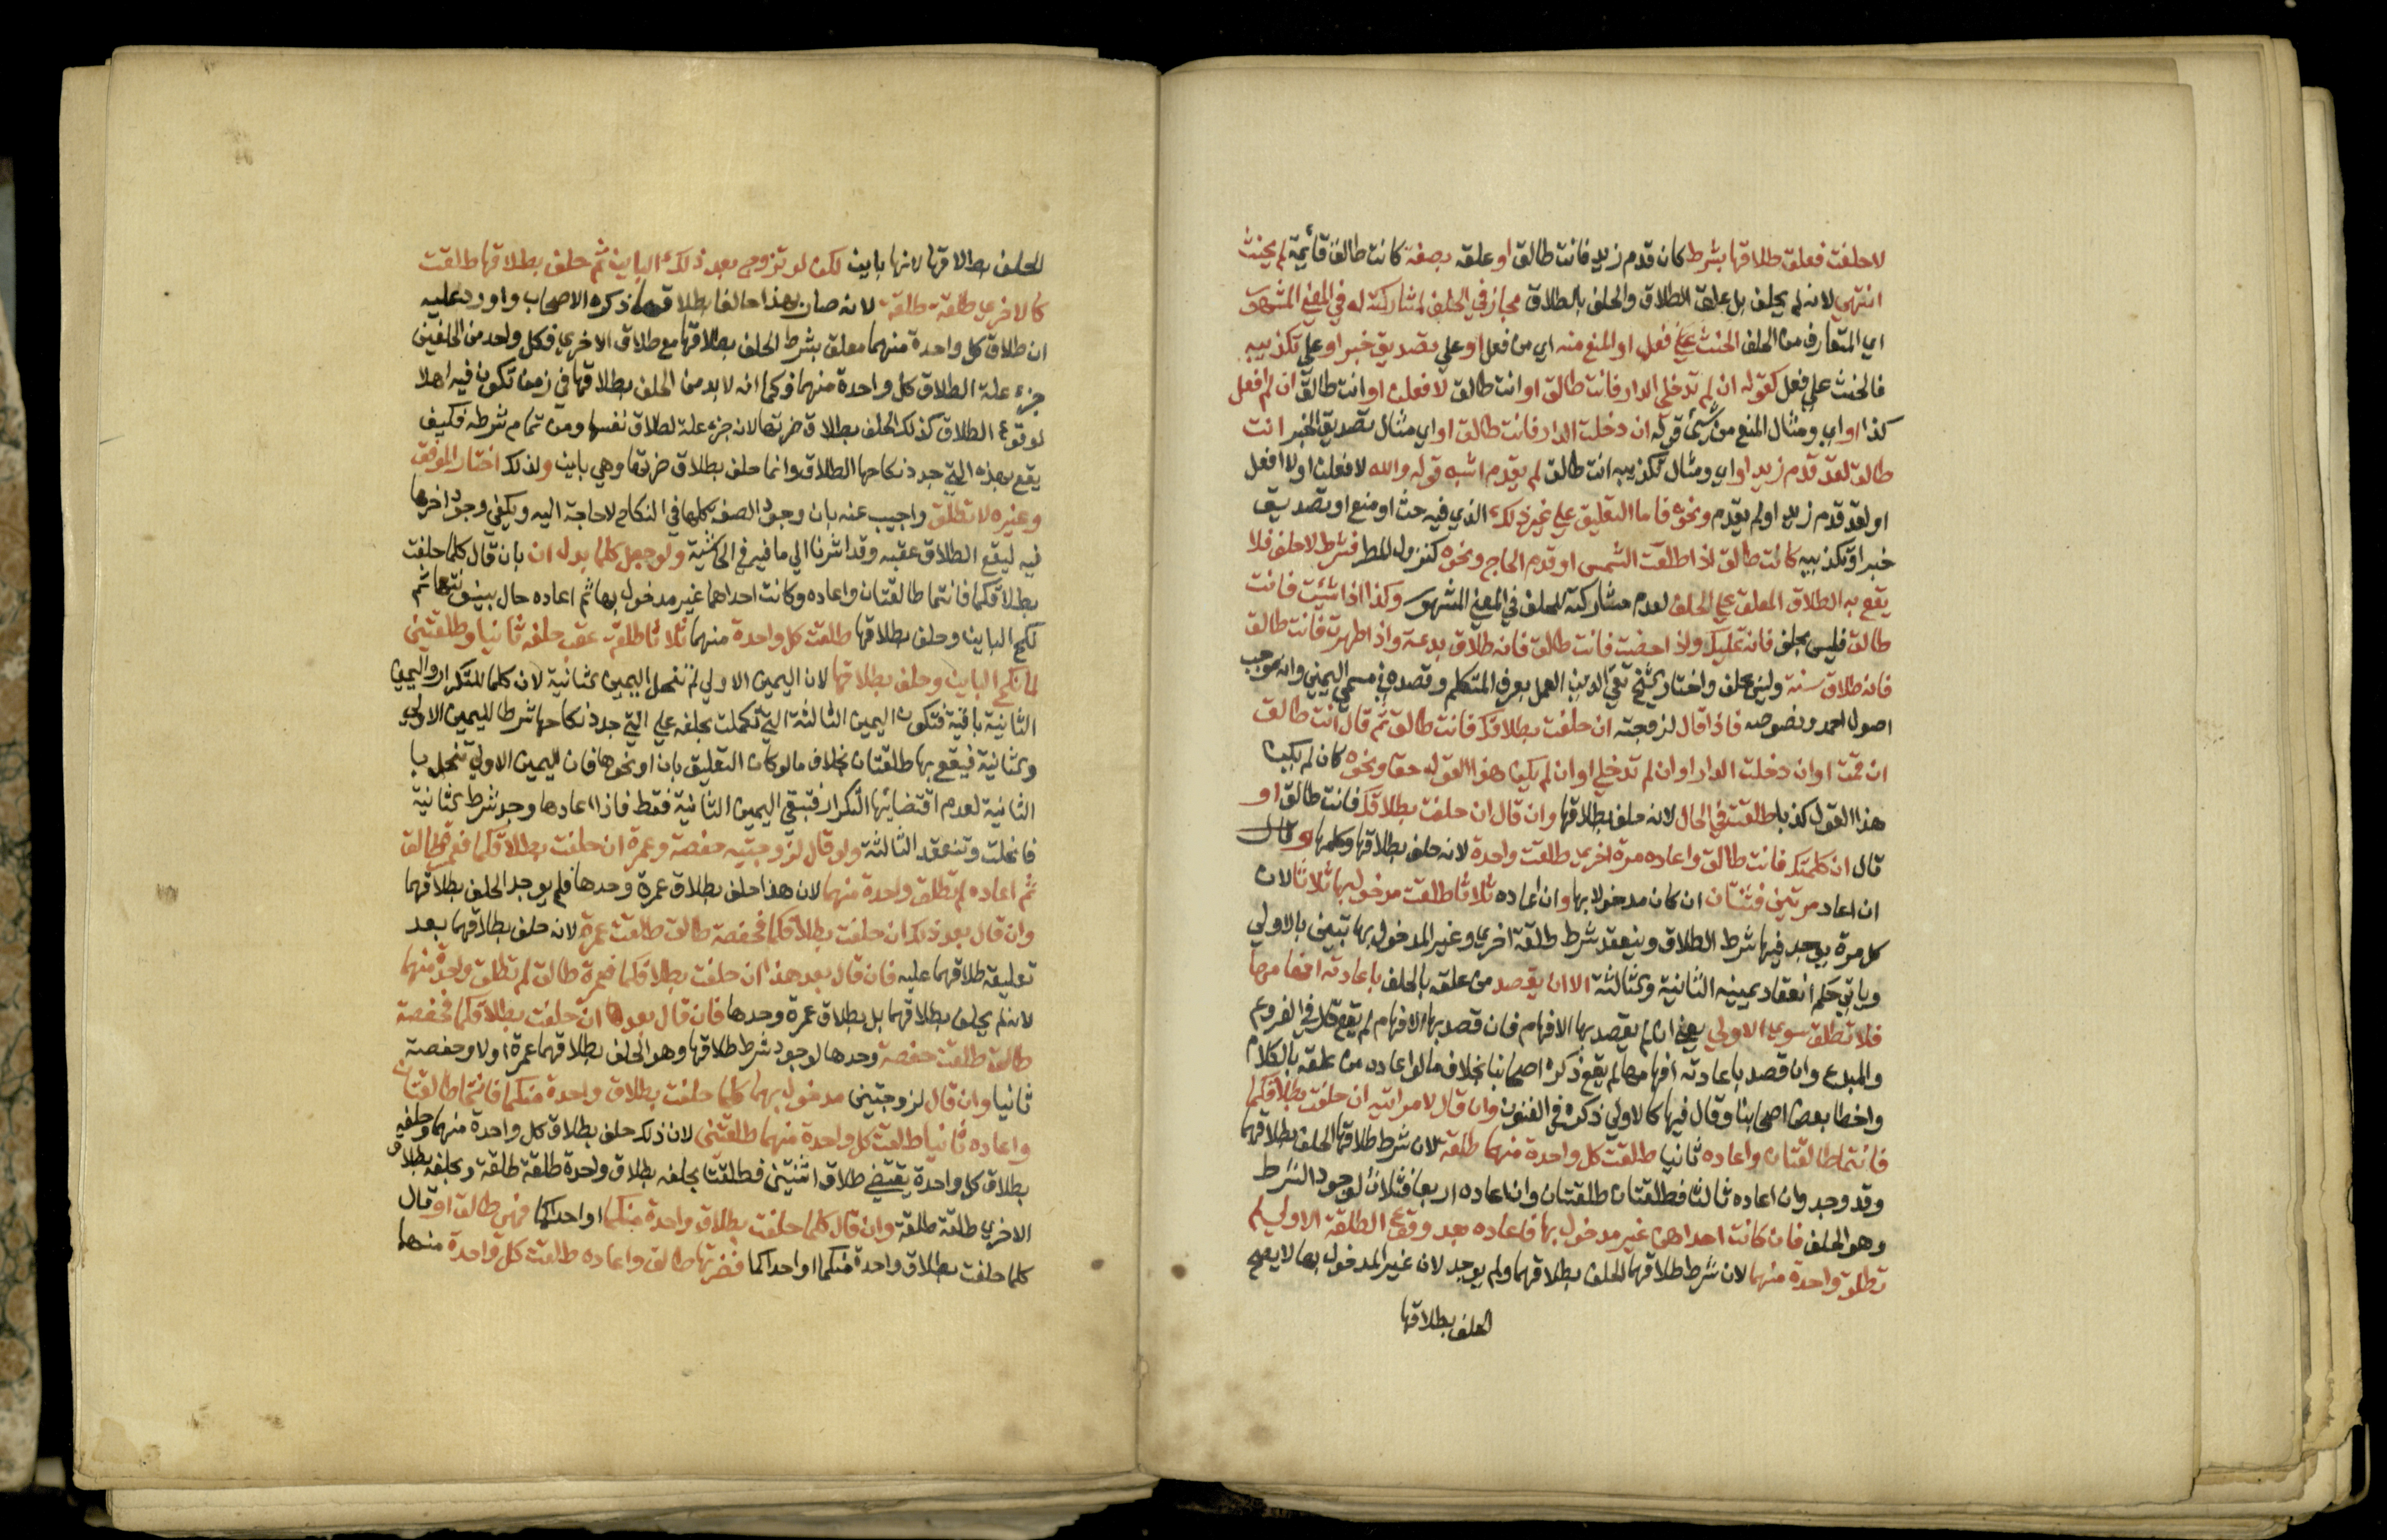 لا حلفت فعلق طلاقها بشرط كان قدم زيد فانت طالق او علقه بصفة كانت طالق قائمة لم يحنث
انتهي لانه لم يحلف بل علق الطلاق والحلف بالطلاق مجاز في الحلف لمشاركته له في المعني المشهور
اي المتعارف من الحلف الحنث علي فعل او المنع منه اي من فعل او علي تصديق خبر او علي تكذيبه
فالحنث علي فعل كقوله ان لم تدخلي الدار فانت طالق او انت طالق لافعلن او انت طالق ان لم افعل
كذا او اي ومثال المنع من شيئ قوله ان دخلت الدار فانت طالق او اي مثال تصديق الخبر انت
طالق لقد قدم زيد او اي ومثال تكذيبه انت طالق لم يقدم اشبه قوله والله لا فعلن او لا افعل
او لقد قدم زيد او لم يقدم ونحوه فاما التعليق علي غير ذلك الذي فيه حث او منع او تصديق
خبر او تكذيبه كانت طالق اذا طلعت الشمس او قدم الحاج ونحوه كنزول المطر فشرط لا حلف فلا
يقع به الطلاق المعلق علي الحلف لعدم مشاركته للحلف في المعني المشهور وكذا اذا شئت فانت
طالق فليس بحلف فانه تمليك واذا حضت فانت طالق فانه طلاق بدعة واذا طهرت فانت طالق
فانه طلاق سنة وليس بحلف واختار الشيخ تقي الدين العمل بعرف المتكلم وقصده في مسمي اليمين وانه موجب
اصول احمد ونصوصه فاذا قال لزوجته ان حلفت بطلاقك فانت طالق ثم قال انت طالق
ان قمت او ان دخلت الدار او ان لم تدخلي او ان لم يكن هذا القول حقا ونحوه كان لم يكن
هذا القول كذبا طلقت في الحال لانه حلف بطلاقها وان قال ان حلفت بطلاقك فانت طالق او
قال ان كلمتك فانت طالق واعاده مرة اخري طلقت واحدة لانه حلف بطلاقها وكلمها وقال
ان اعاد مرتين فثنتان ان كان مدخولا بها وان اعاده ثلاثا طلقت مدخول بها ثلاثا لان
كل مرة يوجد فيها شرط الطلاق وينعقد شرط طلقة اخري وغير المدخول بها تبين بالاولي
وياتي حكم انعقاد يمينه الثانية والثالثة الا ان يقصد من علقه بالحلف باعادته افهامها
فلا تطلق سوي الاولي يعني ان لم يقصد بها الافهام فان قصد بها الافهام لم يقع في الفروع
والمبدع وان قصد باعادته افهامها لم يقع ذكره اصحابنا بخلاف ما لو اعاده من علقه بالكلام
واخطا بعض اصحابنا وقال فيها كالاولي ذكره في الفنون وان قال لامراتيه ان حلفت بطلاقكما
فانتما طالقتان واعاده ثانيا طلقت كل واحدة منهما طلقة لان شرط طلاقها الحلف بطلاقهما
وقد وجد وان اعاده ثالثا فطلقتان طلقتان وان اعاده اربعا فثلاث لوجود الشرط
وهو الحلف فان كانت احداهن غير مدخول بها فاعاده بعد وقوع الطلقة الاولي لم
تطلق واحدة منهما لان شرط طلاقها الحلف بطلاقهما ولم يوجد لان غير المدخول بها لا يصح
الحلف بطلاقها
الحلف بطلاقها لانها باين لكن لو تزوج بعد ذلك الباين ثم حلف بطلاقها طلقت
كالاخري طلقة طلقة لانه صار بهذا حالفا بطلاقهما ذكره الاصحاب واورد عليه
ان طلاق كل واحدة منهما معلق بشرط الحلف بطلاقها مع طلاق الاخري فكل واحد من الحلفين
جزء علة الطلاق كل واحدة منهما فكما انه لا بد من الحلف بطلاقها في زمن تكون فيه اهلا
لوقوع الطلاق كذلك الحلف بطلاق ضرتها لانه جزء علة لطلاق نفسها ومن تمام شرطه فكيف
يقع بهذه التي جدد نكاحها الطلاق وانما حلف بطلاق ضرتها وهي باين ولذلك اختار الموفق
وغيره لا تطلق واجيب عنه بان وجود الصفة كلها في النكاح لا حاجة اليه ويكفي وجود اخرها
فيه ليقع الطلاق عقبه وقد اشرنا الي ما فيه في الحاشية ولو جعل كلما بدل ان بان قال كلما حلفت
بطلاقكما فانتما طالقتان واعاده وكانت احداهما غير مدخول بها ثم اعاده حال بينونتها ثم
نكح الباين وحلف بطلاقها طلقت كل واحدة منهما ثلاثا طلقة عقب حلفه ثانيا وطلقتين
لما نكح الباين وحلف بطلاقها لان اليمين الاولي لم تنحل باليمين الثانية لان كلما للتكرار واليمين
الثانية باقية فتكون اليمين الثالثة التي تكملت بحلفه علي التي جدد نكاحها شرطا لليمين الاولي
والثانية فيقع بها طلقتان بخلاف ما لو كان التعليق بان او نحوها فان اليمين الاولي تنحل با
الثانية لعدم اقتضائها التكرار فتبقي اليمين الثانية فقط فاذا اعادها وجد شرط الثانية
فانحلت وتنعقد الثالثة ولو قال لزوجتيه حفصة وعمرة ان حلفت بطلاقكما فعمرة طالق
ثم اعاده لم تطلق واحدة منهما لان هذا حلف بطلاق عمرة وحدها فلم يوجد الحلف بطلاقهما
وان قال بعد ذلك ان حلفت بطلاقكما فحفصة طالق طلقت عمرة لانه حلف بطلاقهما بعد
تعليقه طلاقهما عليه فان قال بعد هذا ان حلفت بطلاقكما فعمرة طالق لم تطلق واحدة منهما
لانه لم يحلف بطلاقهما بل بطلاق عمرة وحدها فان قال بعدها ان حلفت بطلاقكما فحفصة
طالق طلقت حفصة وحدها لوجود شرط طلاقها وهو الحلف بطلاقهما عمرة اولا وحفصة
ثانيا وان قال لزوجتين مدخول بهما كلما حلفت بطلاق واحدة منكما فانتما طالقتان
واعاده ثانيا طلقت كل واحدة منهما طلقتين لان ذلك حلف بطلاق كل واحدة منهما وحلفه
بطلاق كل واحدة يقتضي طلاق اثنتين فطلقتا بحلفه بطلاق واحدة طلقة طلقة وبحلفه بطلاق
الاخري طلقة طلقة وان قال كلما حلفت بطلاق واحدة منكما او احداكما فهي طالق او قال
كلما حلفت بطلاق واحدة منكما او احداكما فضرتها طالق واعاده طلقت كل واحدة منهما